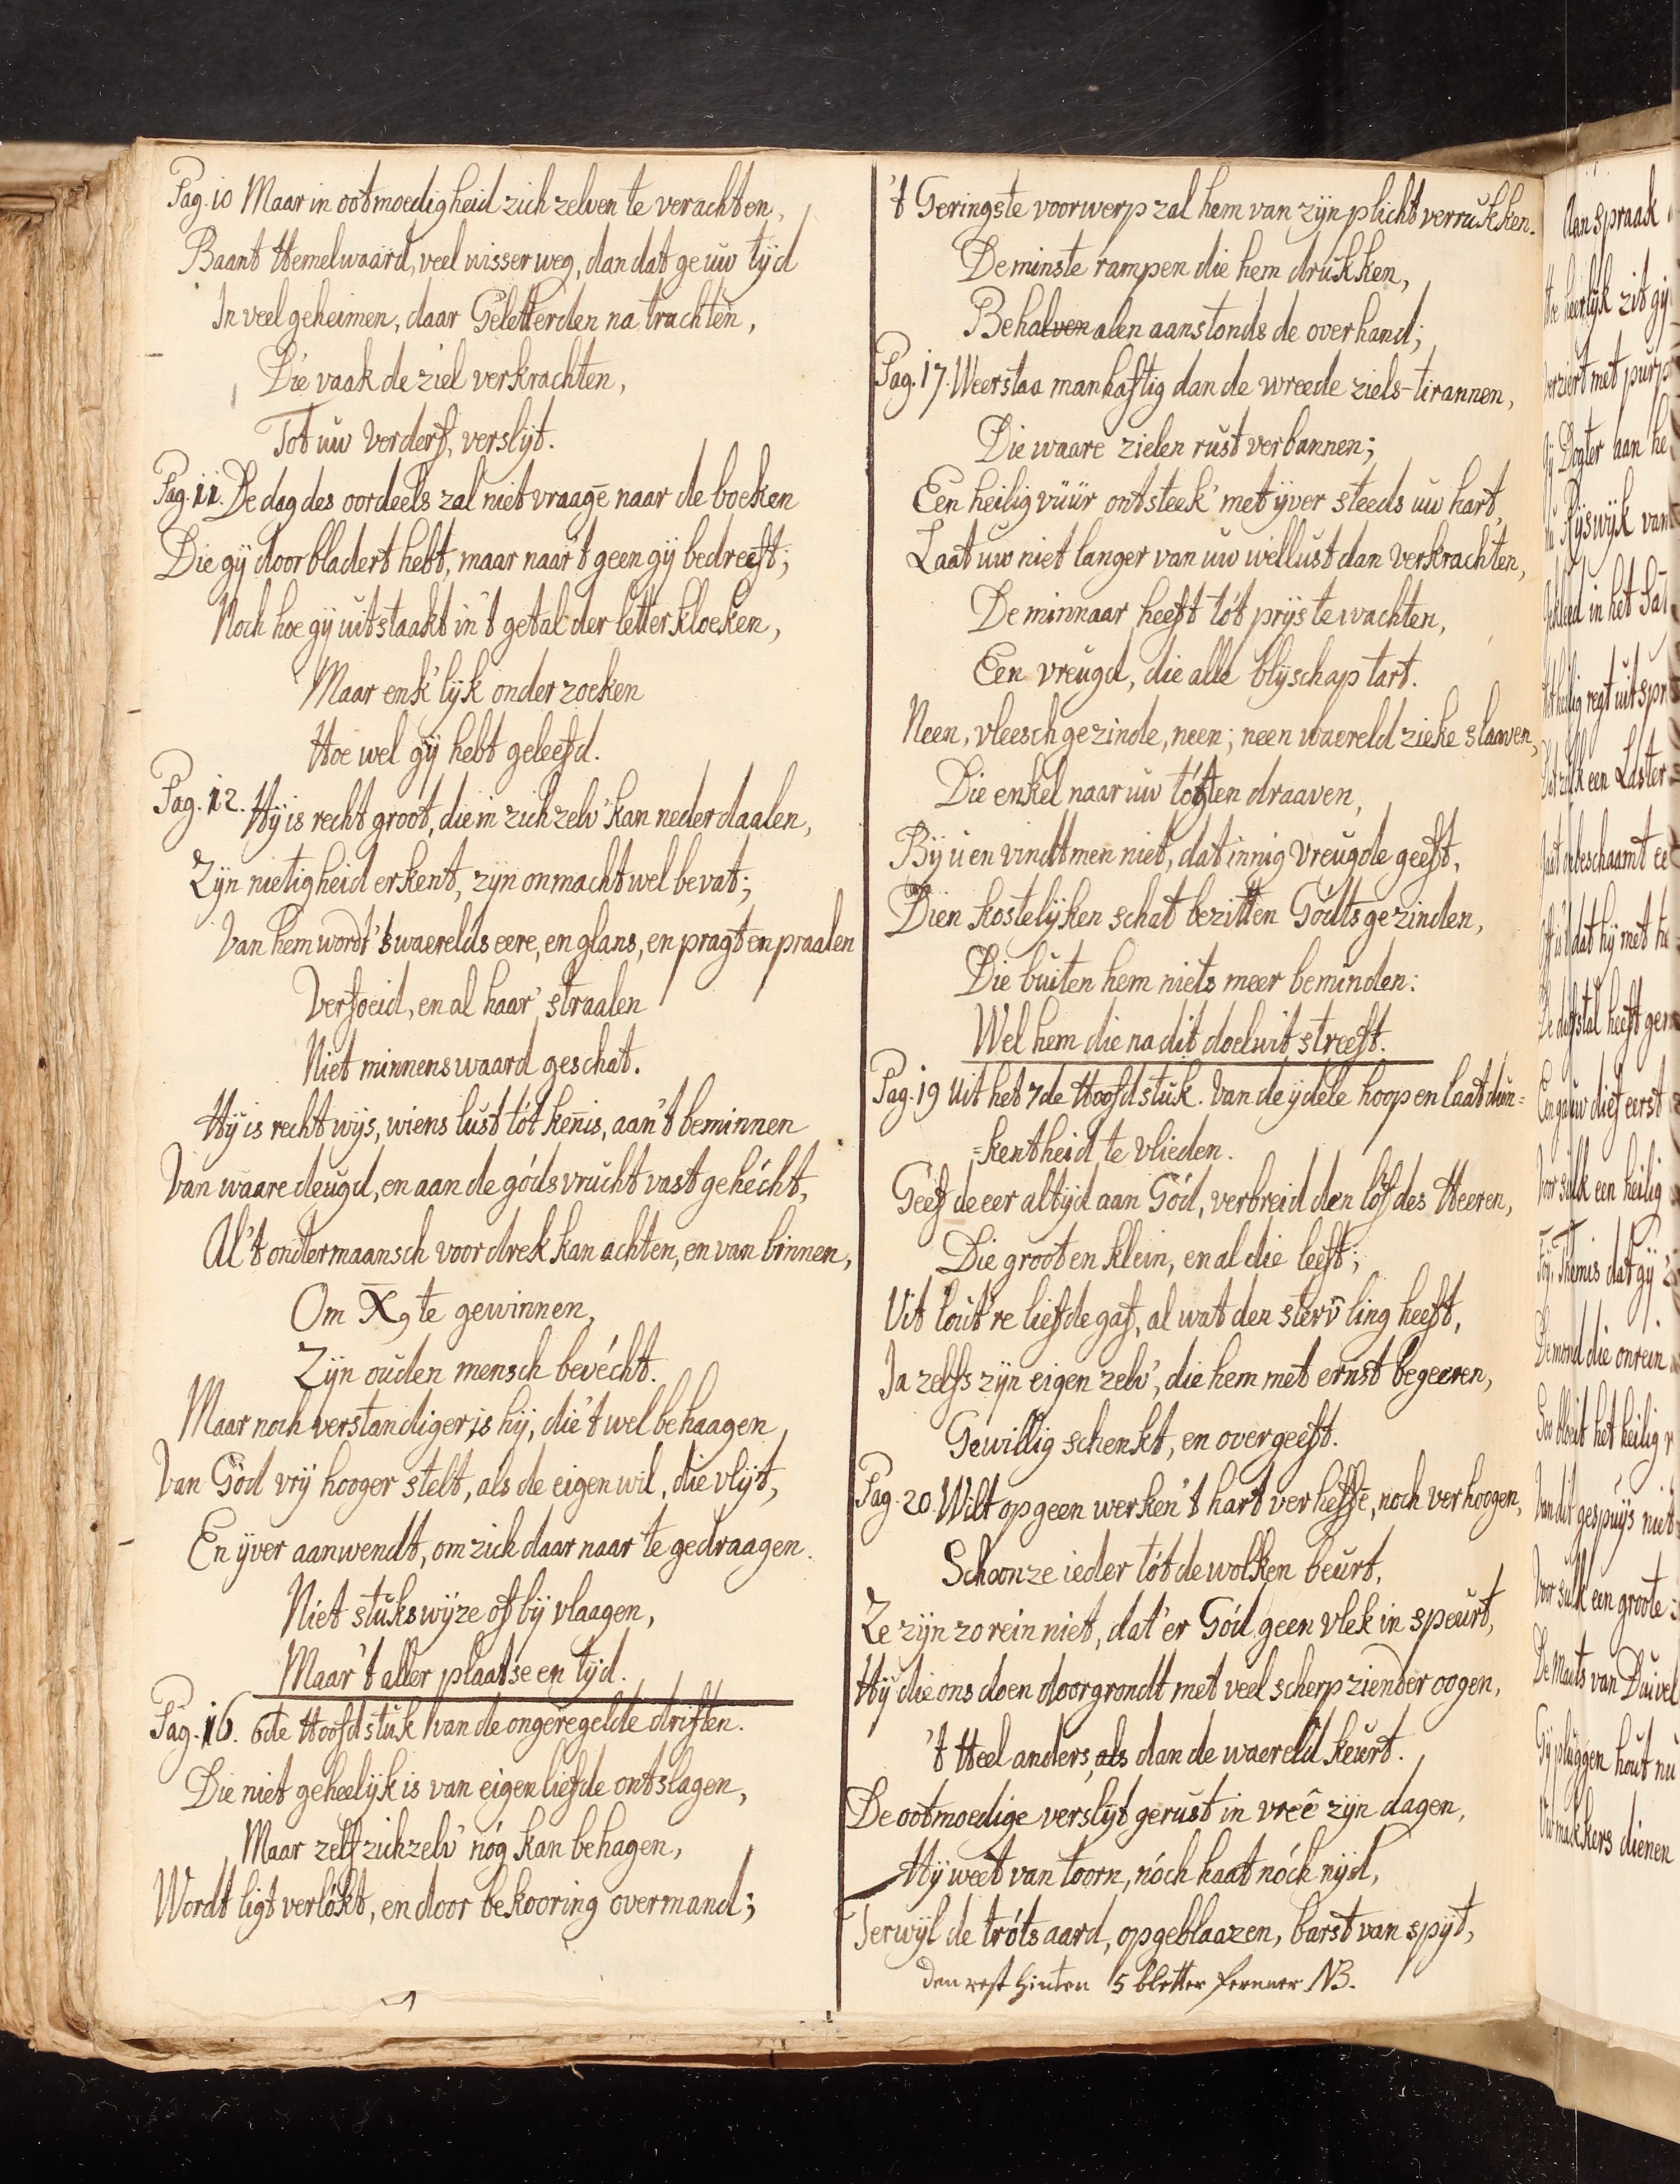 Pag. 10 Maar in ootmoedigheid zich zelven te verachten,
Baant Hemelwaard, veel wisser weg, dan dat ge uw tijd
In veel geheimen, daar Geletterden na trachten,
Die vaak de ziel verkrachten,
Tot uw verderf, verslijt.
Pag. 11. De dag des oordeels zal niet vraagē naar de boeken
Die gij doorbladert hebt, maar naar 't geen gij bedreeft;
Noch hoe gij uitstaakt in 't getal der letterkloeken,
Maar enk'lijk onderzoeken
Hoe wel gij hebt geleefd.
Pag. 12. Hij is recht groot, die in zich zelv' kan nederdaalen,
Zijn nietigheid erkent, zijn onmacht wel bevat;
Van hem wordt 's waerelds eere, en glans, en pragt en praalen
Verfoeid, en al haar' straalen
Niet minnenswaard geschat.
Hij is recht wijs, wiens lust tót kēnis, aan 't beminnen
Van waare deugd, en aan de gódsvrucht vast gehécht,
Al 't ondermaansch voor drek kan achten, en van binnen,
Om X9 te gewinnen,
Zijn ouden mensch bevécht.
Maar noch verstandiger is hij, die 't welbehaagen
Van Gód vrij hooger stelt, als de eigen wil, die vlijt,
En ijver aanwendt, om zich daar naar te gedraagen.
Niet stukswijze of bij vlaagen,
Maar 't aller plaatse en tijd.
Pag. 16. 6de Hoofdstuk van de ongeregelde driften.
Die niet geheelijk is van eigenliefde ontslagen,
Maar zelf zichzelv' nóg kan behagen,
Wordt ligt verlókt, en door bekooring overmand;
't Geringste voorwerp zal hem van zijn plicht verrukken.
De minste rampen die hem drukken,
Behalven alen aanstonds de overhand;
Pag. 17. Weerstaa manhaftig dan de wreede ziels-tirannen,
Die waare zielen rust verbannen;
Een heilig vüür ontsteek' met ijver steeds uw hart,
Laat uw niet langer van uw wellust dan verkrachten,
De minnaar heeft tót prijs te wachten,
Een vreugd, die alle blijschap tart.
Neen, vleeschgezinde, neen; neen waereld zieke slaaven,
Die enkel naar uw tógten draaven,
Bij u en vindt men niet, dat innig vreugde geeft,
Dien kostelijken schat bezitten Godtsgezinden,
Die buiten hem niets meer beminden:
Wel hem die na dit doelwit streeft.
Pag. 19 Uit het 7de Hoofdstuk. Van de ydele hoop en laatdun=
=kentheid te vlieden.
Geef de eer altijd aan Gód, verbreid den lóf des Heeren,
Die groot en klein, en al die leeft;
Uit lout're liefde gaf, al wat den sterv'ling heeft,
Ja zelfs zijn eigen zelv', die hem met ernst begeeren,
Gewillig schenkt, en overgeeft.
Pag. 20. Wilt op geen werken 't hart verheffē, noch verhoogen,
Schoon ze ieder tót de wolken beurt,
Ze zijn zo rein niet, dat 'er Gód geen vlek in speurt,
Hij die ons doen doorgrondt met veel scherpziender oogen,
't Heel anders, als dan de waereld keurt.
De ootmoedige verslijt gerust in vreê zijn dagen,
Hij weet van toorn, nóch haat nóch nijd,
Terwijl de trótsaard, opgeblaazen, barst van spijt,
den rest hinten 5 bletter ferner NB.
Aanspraak
heerlijk zit gij
verziert met purp
Dogter aan he
Rijswijk van
in het Sat
heilig regt uitspr
een Laster
onbeschaamt ee
dat hij met
heeft gen
dief eerst
een heilig
Foij, Themis dat gij
De mond die onrein
het heilig
gespuijs niet
Voor sulk een groote
De Maats van Duivel
Gij pluggen hout nu
dienen